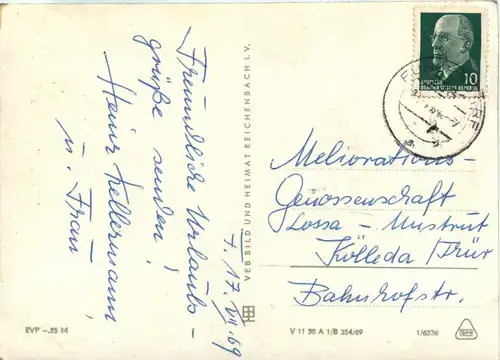 Freundliche Urlaubs-
grüße senden
Heinz Kellermann
u. Frau
17. VII 69
VEB BILD UND HEIMAT REICHENBACH I. V.
10
DEUTSCHE
DEMOKRATISCHE REPUBLIK
Meliorations-
Genossenschaft
Lossa - Unstrut
Kölleda /Thür
Bahnhofstr.
EVP -.25 M
V 11 50 A 1/B 354/69
1/6336